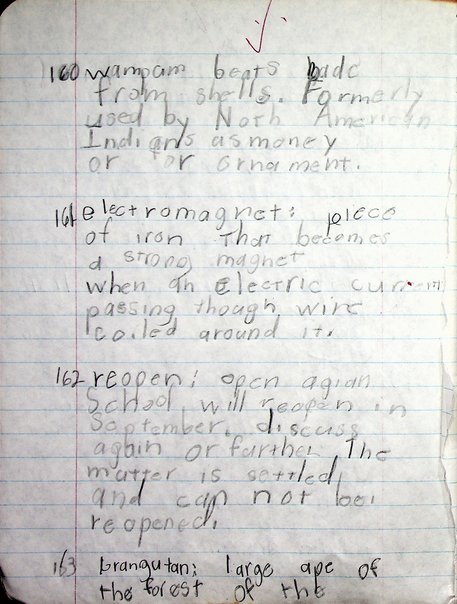 160 wampam beats made
from shells. Formerly
used by Noth American
Indians as money
or for ornament.
161 electromagnet: piece
of iron that becomes
a strong magnet
when an electric curren
passing though wire
coiled around it.
162 reopen: open agian
School will reopen in
September. discuss
again or further The
matter is settled
and can not be
reopened.
163 orangutan: large ape of
the forest of the